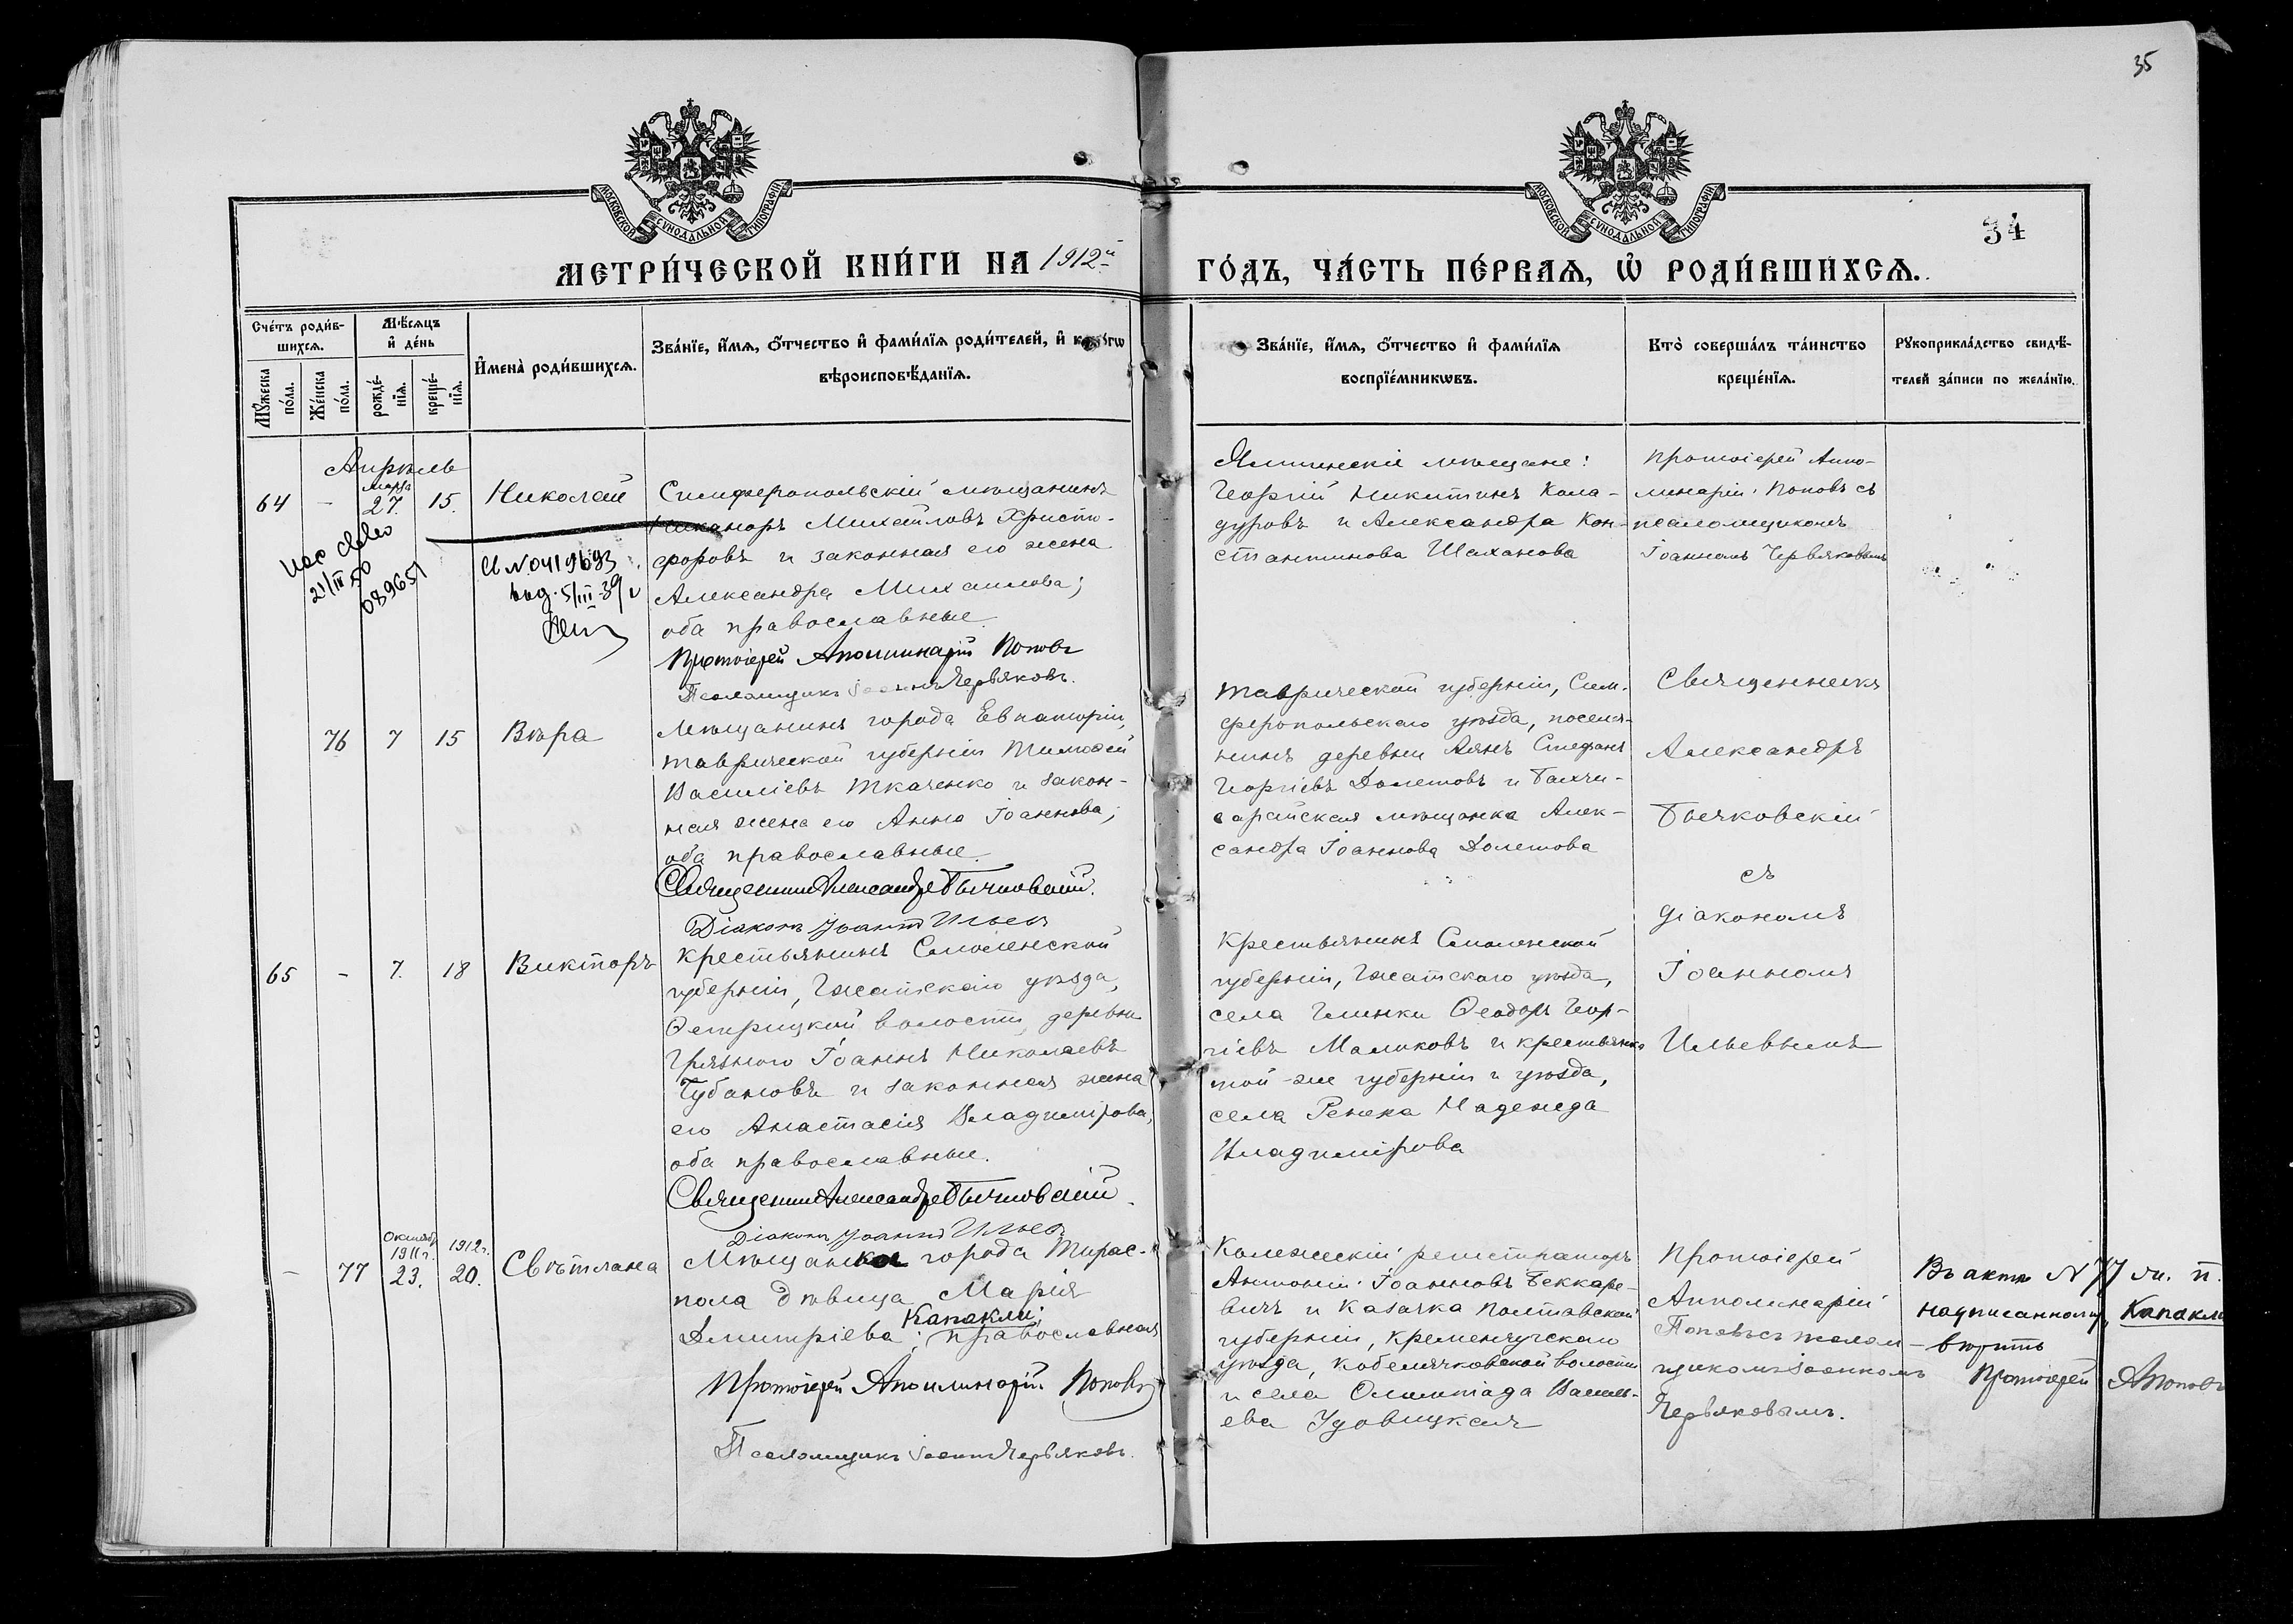 35
34
МОСКОВСКОЙ СѴНОДАЛЬНОЙ ТИПОГРАФІИ
МОСКОВСКОЙ СѴНОДАЛЬНОЙ ТИПОГРАФІИ
МЕТРИ́ЧЕСКОЙ КНИ́ГИ НА 1912й
ГО́ДЪ, ЧА́СТЬ ПЕ́РВАЯ, Ѡ҆ РОДИ́ВШИХСЯ.
Сче́тъ роди́в-
шихсѧ.
Мꙋ́жеска по́ла.
Же́нска по́ла.
Мѣ́сѧцъ
и҆ де́нь
рожде́-нїѧ.
креще́-нїѧ.
И҆мена̀ роди́вшихсѧ.
Зва́нїе, и҆́мѧ, ѻ҆́тчество и҆ фами́лїѧ роди́телей, и҆ ко́егѡ
вѣроисповѣ́данїѧ.
Зва́нїе, и҆́мѧ, ѻ҆́тчество и҆ фами́лїѧ
воспрїе́мникѡвъ.
Кто̀ соверша́лъ та́инство
креще́нїѧ.
Рꙋкоприкла́дство свидѣ́-
телей за́писи по жела́нїю.
Апрѣль
64 - марта 27. 15. Николай
Симферопольскій мѣщанинъ
Никаноръ Михайловъ Христо-
форовъ и законная его жена
Александра Михаилова;
оба православные.
Протоіерей Аполлинарій Поповъ
Псаломщикъ Іоаннъ Червяковъ.
21/III 50
089651
№ 0419693
выд. 5/III-39
Ялтинскіе мѣщане:
Георгій Никитинъ Кала-
дуровъ и Александра Кон-
стантинова Шаханова
Протоіерей Аппо-
линарій Поповъ съ
псаломщикомъ
Іоанномъ Червяковымъ
76 7 15 Вѣра
Мѣщанинъ города Евпаторіи,
Таврической губерніи Тимоѳей
Василіевъ Ткаченко и закон-
ная жена его Анна Іоаннова;
оба православные.
Священникъ Александръ Бычковскій.
Діаконъ Іоаннъ Ильевъ
Таврической губерніи, Сим-
феропольскаго уѣзда, поселя-
нинъ деревни Аянъ Стефанъ
Георгіевъ Долетовъ и Бахчи-
сарайская мѣщанка Алек-
сандра Іоаннова Долетова
Священникъ
Александръ
Бычковскій
съ
діакономъ
Іоанномъ
Ильевымъ
65 - 7. 18 Викторъ
Крестьянинъ Смоленской
губерніи, Гжатскаго уѣзда,
волости, деревни
Грязного Іоаннъ Николаевъ
Чубановъ и законная жена
его Анастасія Владимірова,
оба православные.
Священникъ Александръ Бычковскій.
Діаконъ Іоаннъ Ильевъ
Крестьянинъ Смоленской
губерніи, Гжатскаго уѣзда,
села Глинки Ѳеодоръ Геор-
гіевъ Маликовъ и крестьянка
той-же губерніи и уѣзда,
села Надежда
Владимірова
- 77 Октября 1911 г. 23. 1912 г. 20. Свѣтлана
Мѣщанка города Тирас-
поля дѣвица Марія
Капакли;
Дмитріева; православная
Протоіерей Аполлинарій Поповъ
Псаломщикъ Іоаннъ Червяковъ.
Колежскій регистраторъ
Антоній Іоанновъ Беккаре-
вичъ и казачка Полтавской
губерніи, Кременчугскаго
уѣзда, Кобелячковской волости
и села Олимпіада Васил-
ева Удовицкая
Протоіерей
Апполинарій
Поповъ съ псалом-
щикомъ Іоанномъ
Червяковымъ.
Въ актѣ № 77 ж. п.
надписанному, Капакли
- вѣрить
Протоіерей А Поповъ